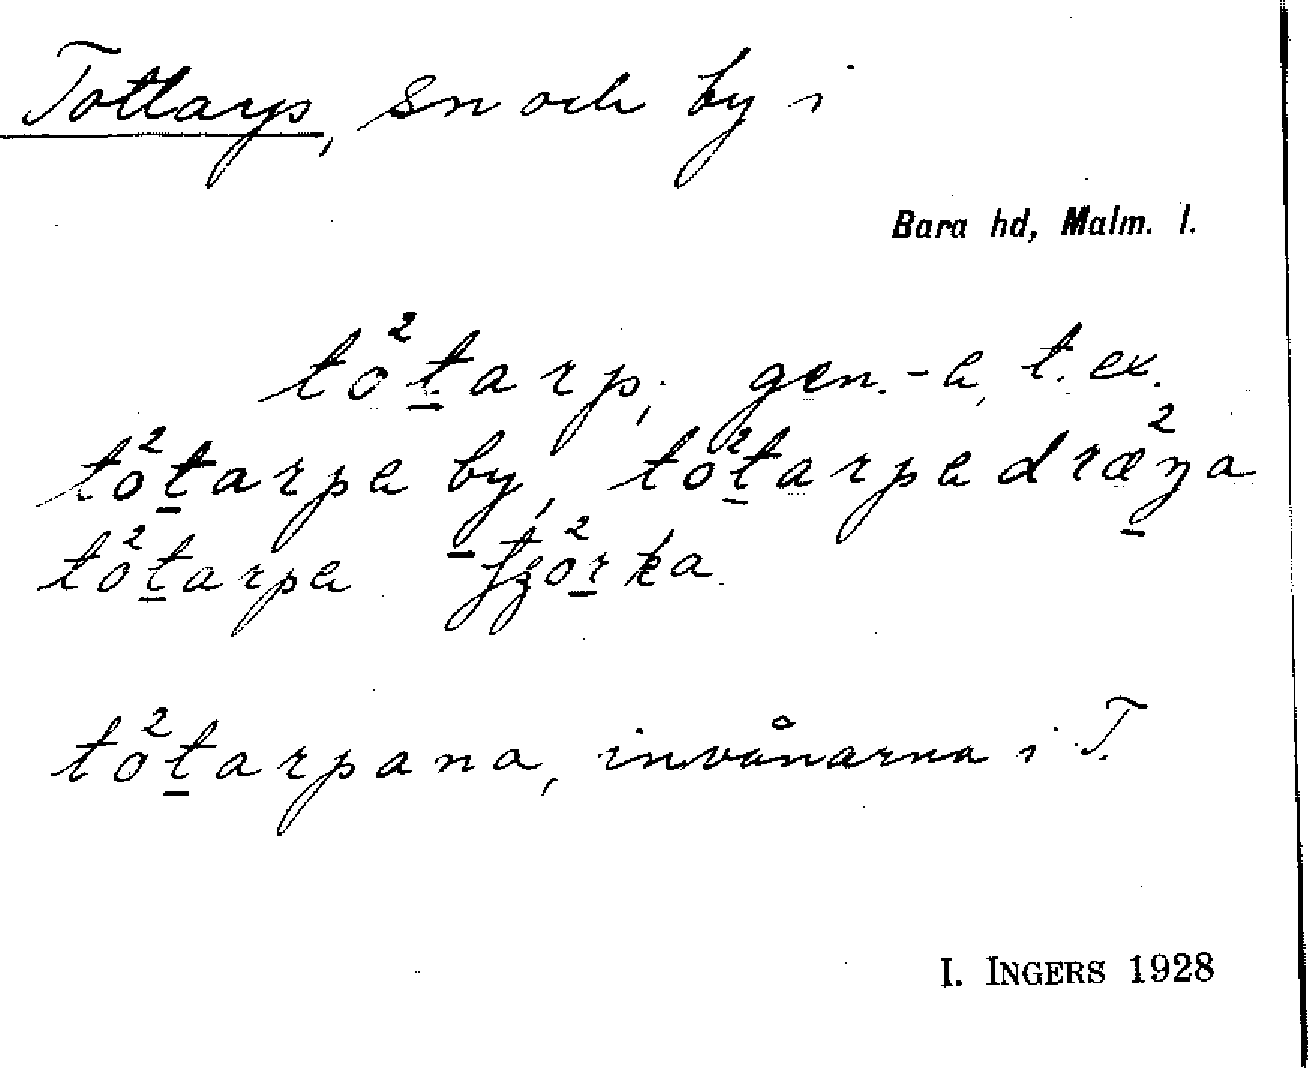 Tottarp, sn och by i
Bara hd, Malm. l.
to²t̲arp; gen. -a, t. ex.
to²t̲arpa by, to²t̲arpadræ²ŋ̲a
to²t̲arpa
to²t̲arpana, invånarna i T.
I. INGERS 1928